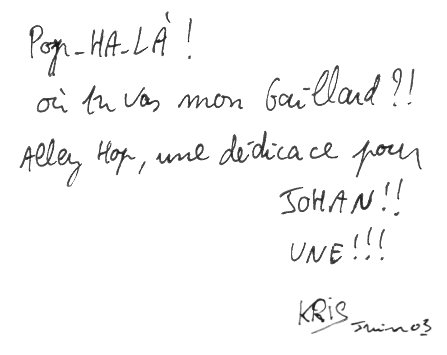 Pop-HA-LÀ !
où tu vas mon Gaillard ?!
Alley Hop, une dédicace pour
JOHAN !!
UNE !!!
KRIS
Juin 03